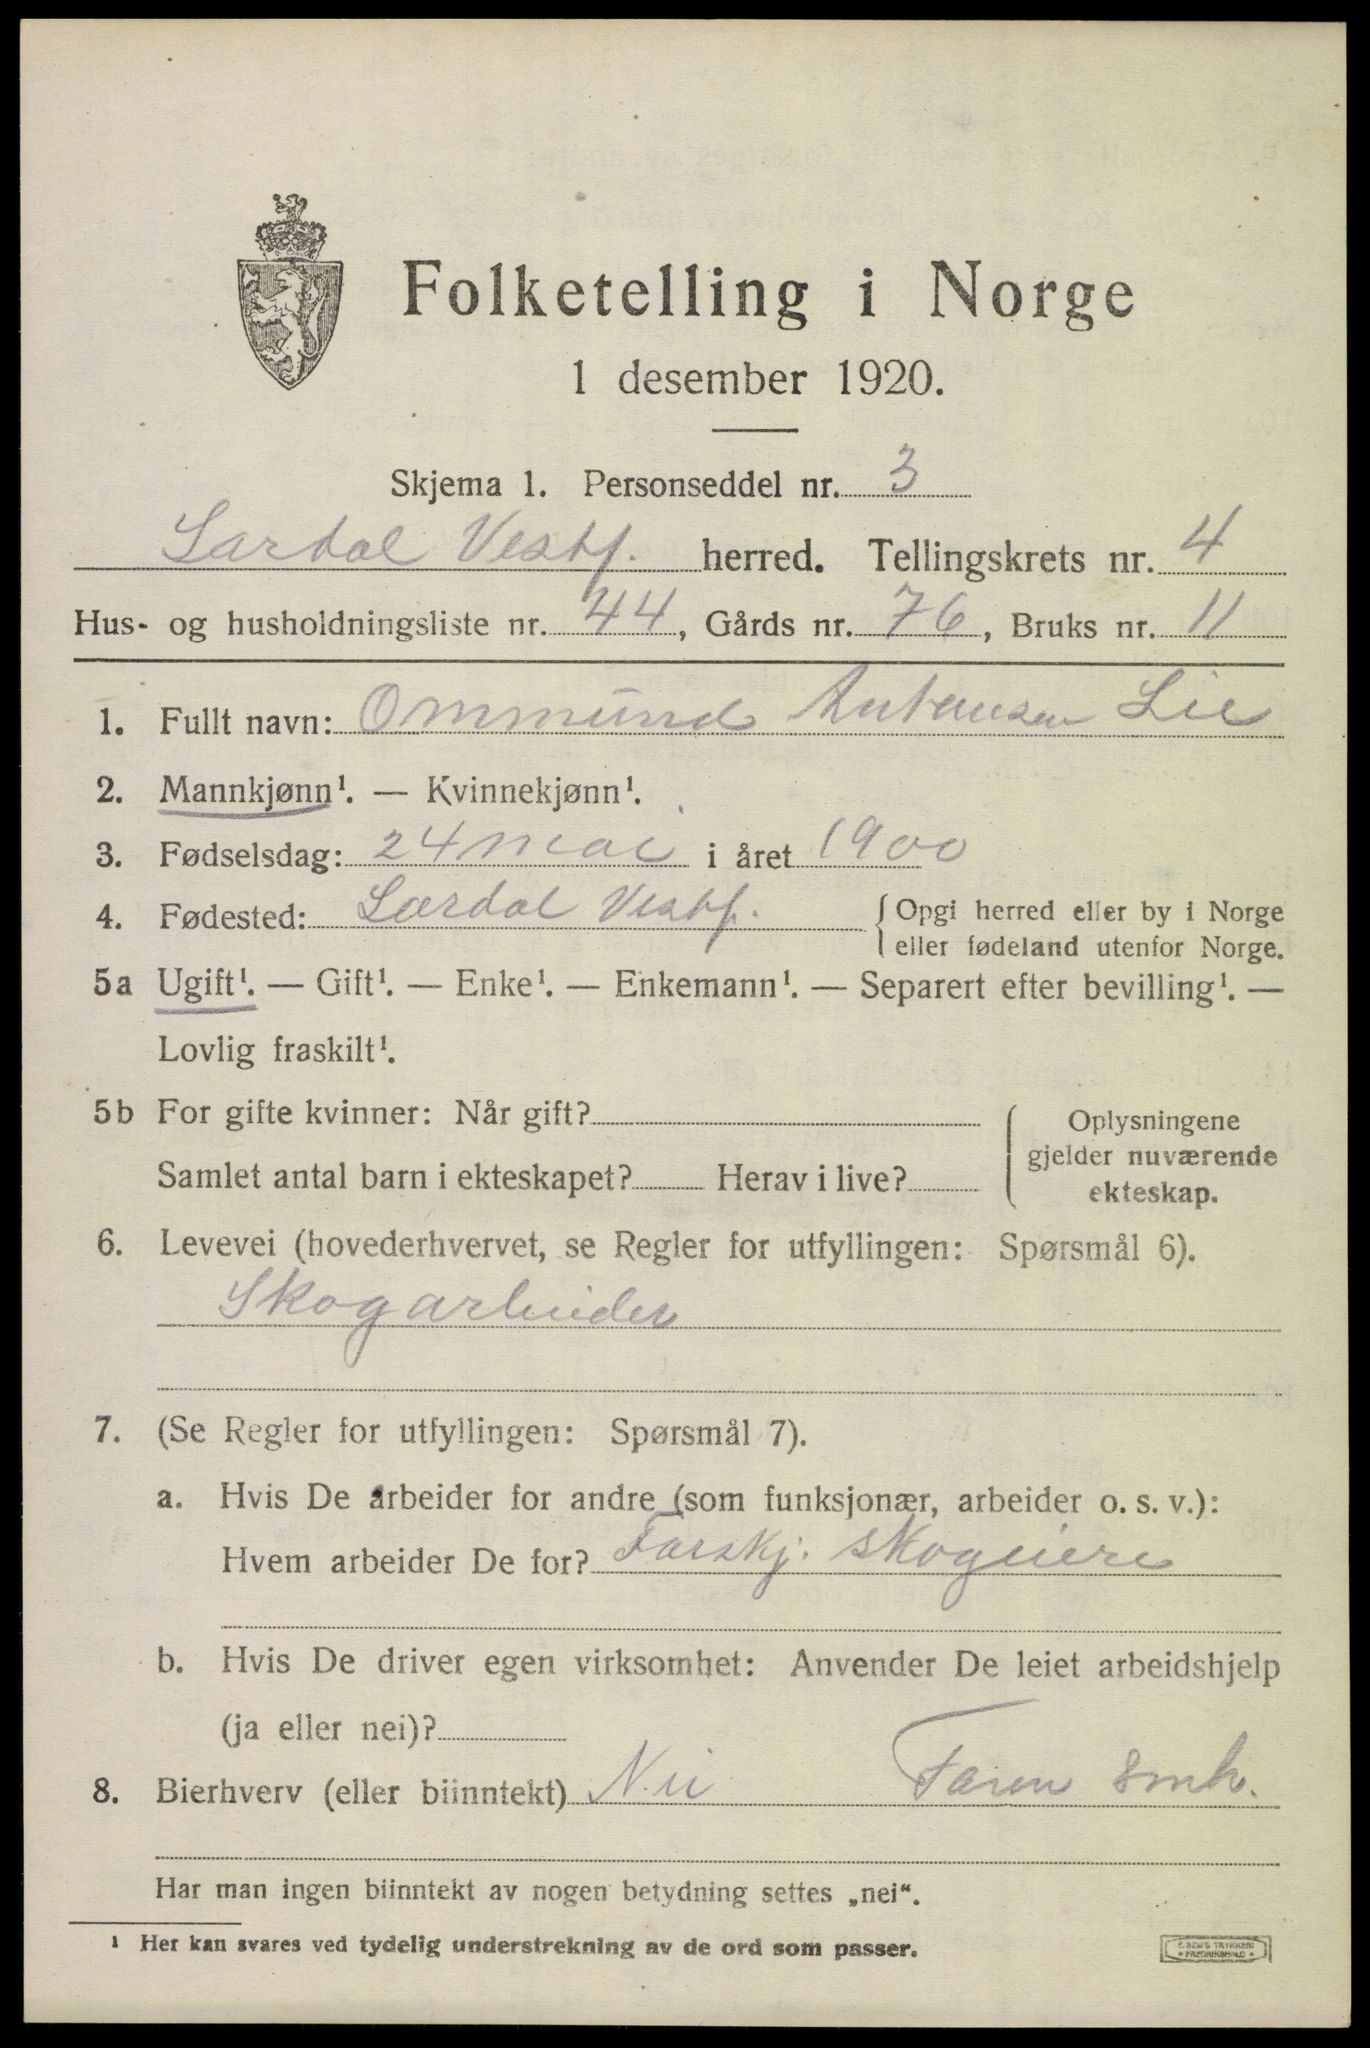 Folketelling i Norge
1 desember 1920.
Skjema 1. Personseddel nr. 3
Lardal Vestf. herred. Tellingskrets nr. 4
Hus- og husholdningsliste nr. 44, Gårds nr. 76, Bruks nr. 11
1. Fullt navn: Ommund Antonsen Lie
2. Mannkjønn¹. — Kvinnekjønn¹.
3. Fødselsdag: 24 mai i året 1900
4. Fødested: Lardal Vestf. { Opgi herred eller by i Norge
eller fødeland utenfor Norge.
5a Ugift¹. — Gift¹. — Enke¹. — Enkemann¹. — Separert efter bevilling¹. —
Lovlig fraskilt¹.
5b For gifte kvinner: Når gift?
Samlet antal barn i ekteskapet? Herav i live?
Oplysningene
gjelder nuværende
ekteskap.
6. Levevei (hovederhvervet, se Regler for utfyllingen: Spørsmål 6).
Skogarbeider
7. (Se Regler for utfyllingen: Spørsmål 7).
a. Hvis De arbeider for andre (som funksjonær, arbeider o. s. v.):
Hvem arbeider De for? Forskj. skogeiere
b. Hvis De driver egen virksomhet: Anvender De leiet arbeidshjelp
(ja eller nei)?
8. Bierhverv (eller biinntekt) Nei Faren
Har man ingen biinntekt av nogen betydning settes „nei“.
¹ Her kan svares ved tydelig understrekning av de ord som passer.